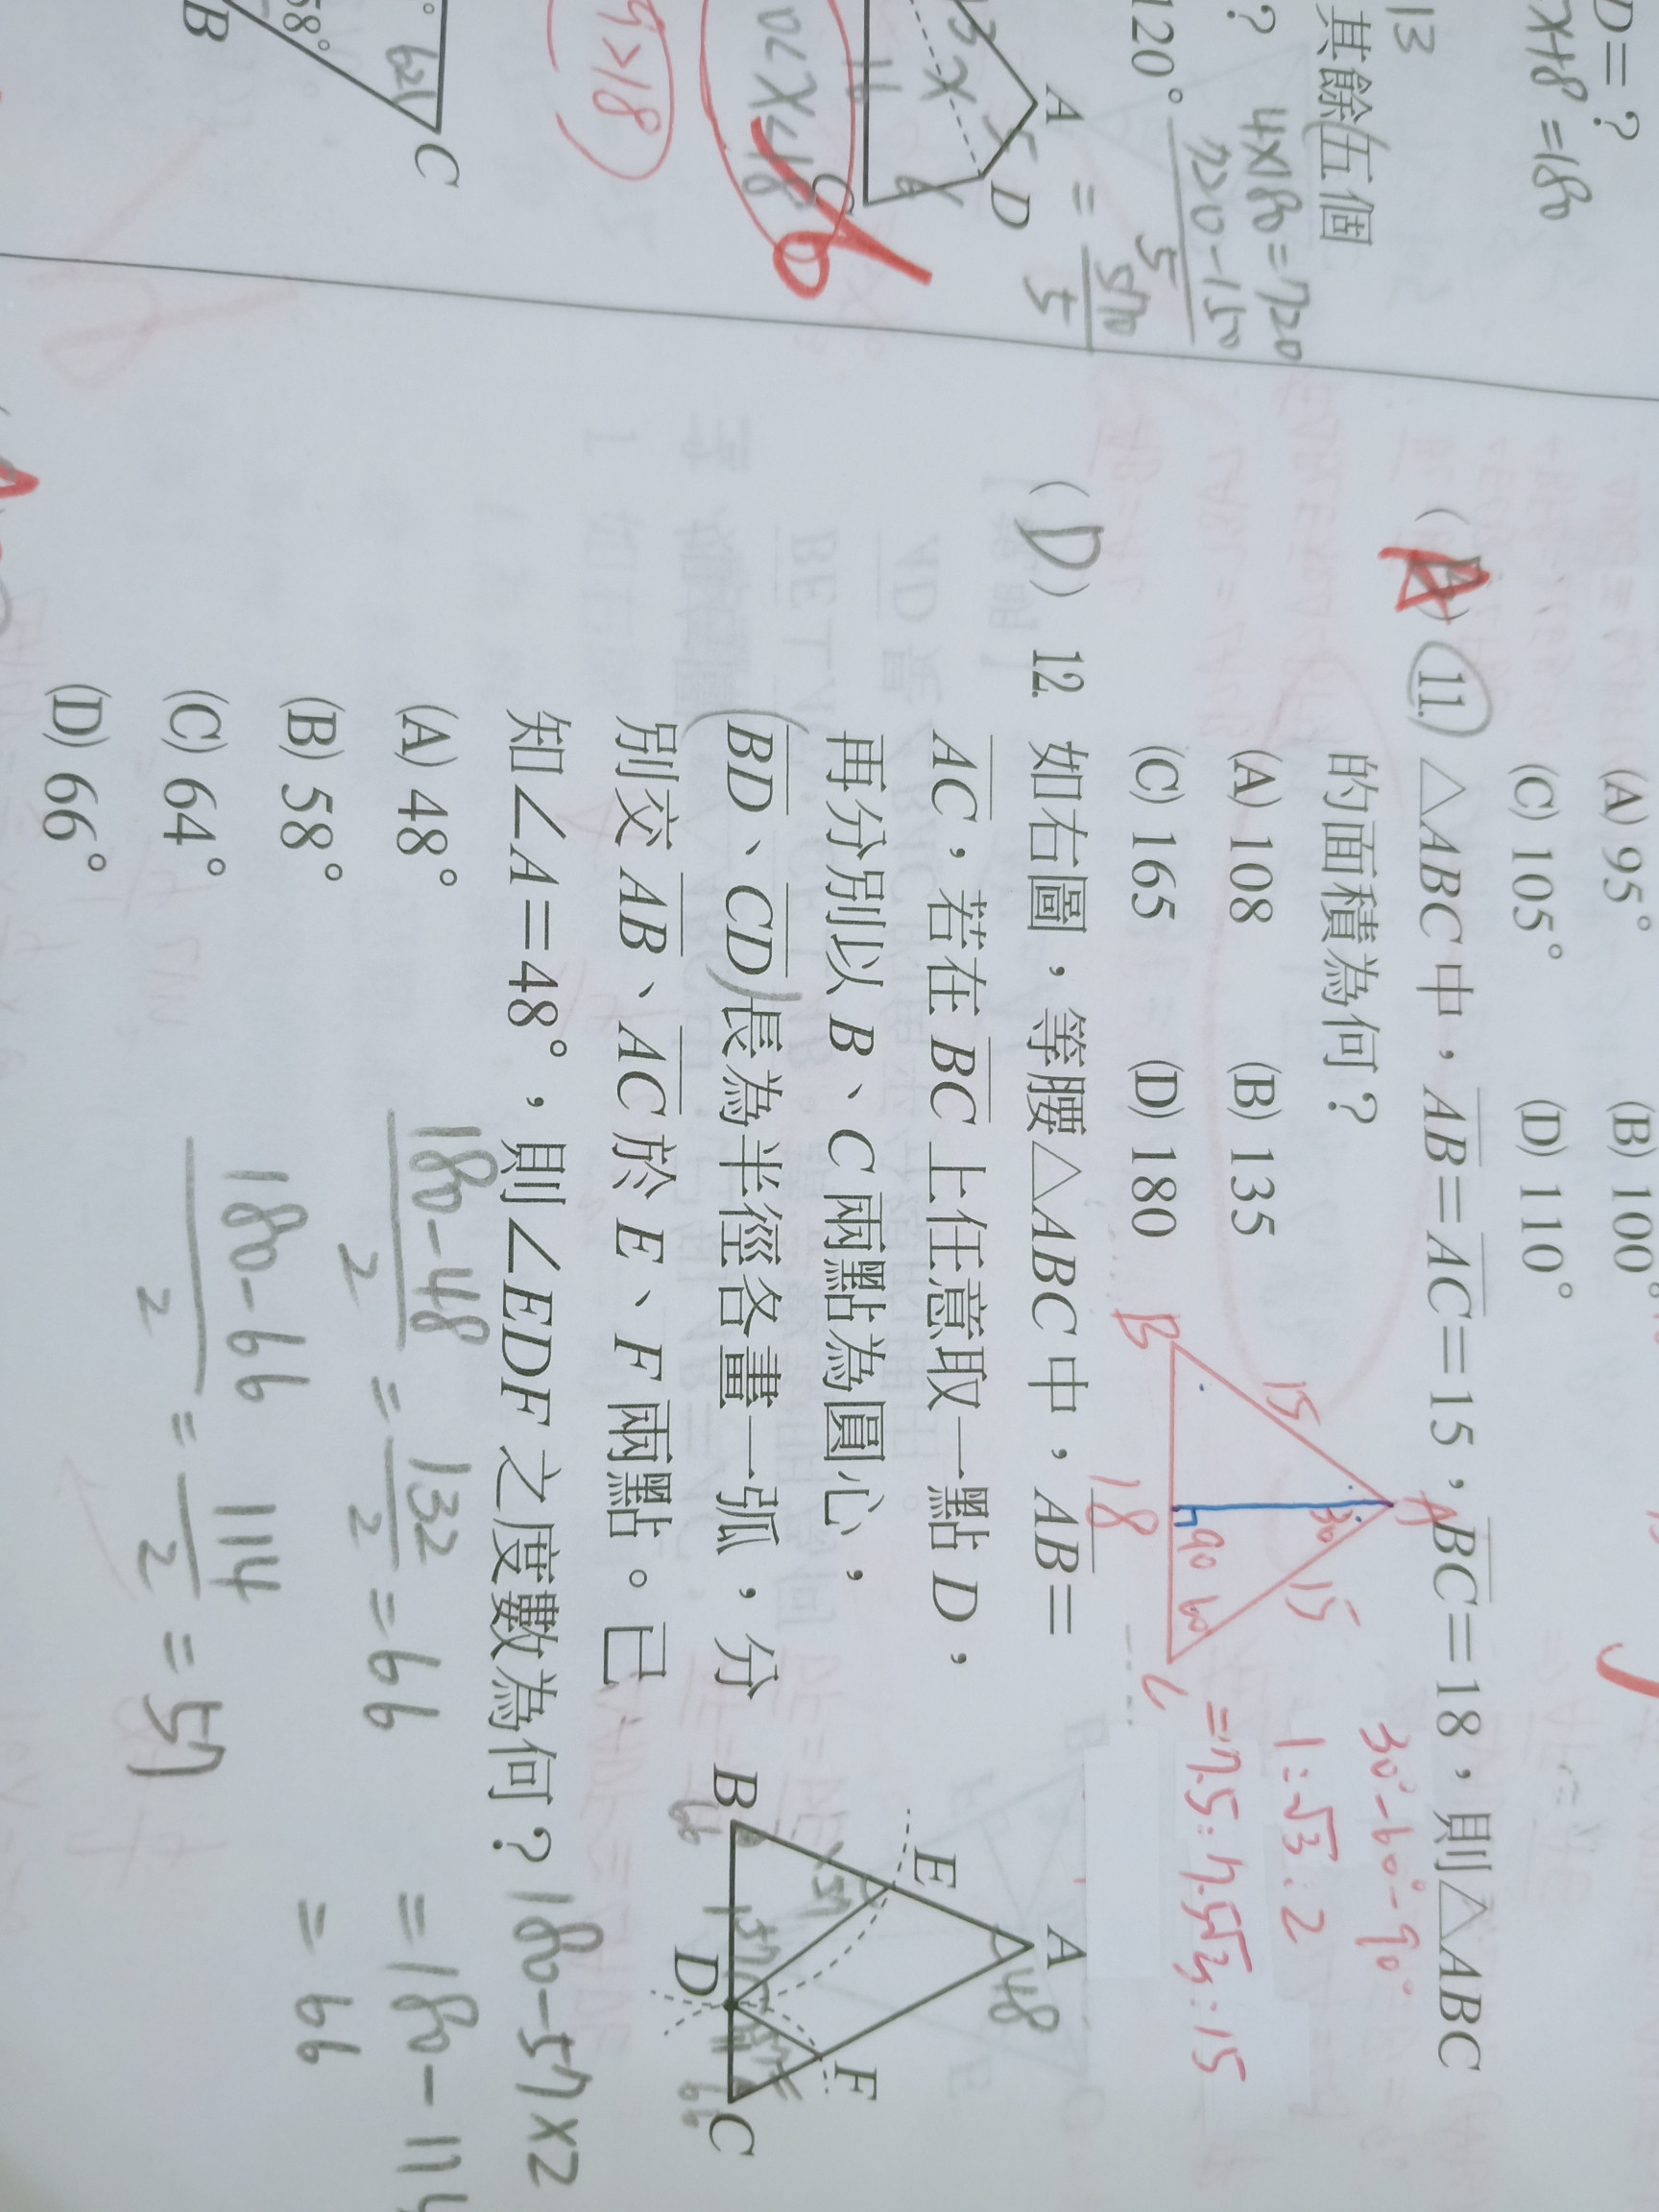 D=?
x+18=180
13
其餘五個
?
4×180=720
720-150
5
120°
=570
5
A
D
13
x
5
6
C
0<x<18
>18
62
58°
B
C
(A) 95° (B) 100°
(C) 105° (D) 110°
(A) 11. △ABC中,AB=AC=15,BC=18,則△ABC
的面積為何?
(A) 108 (B) 135
(C) 165 (D) 180
A
B
C
15
15
30
90
60
18
30°-60°-90°
1:√3:2
=7.5:7.5√3:15
(D) 12. 如右圖,等腰△ABC中,AB=
AC,若在BC上任意取一點D,
再分別以B、C兩點為圓心,
BD、CD長為半徑各畫一弧,分
別交AB、AC於E、F兩點。已
知∠A=48°,則∠EDF之度數為何?
(A) 48°
(B) 58°
(C) 64°
(D) 66°
A
48
E
57
F
B
66
57
D
57
C
66
180-48
2
=132
2
=66
180-66
2
=114
2
=57
180-57×2
=180-114
=66